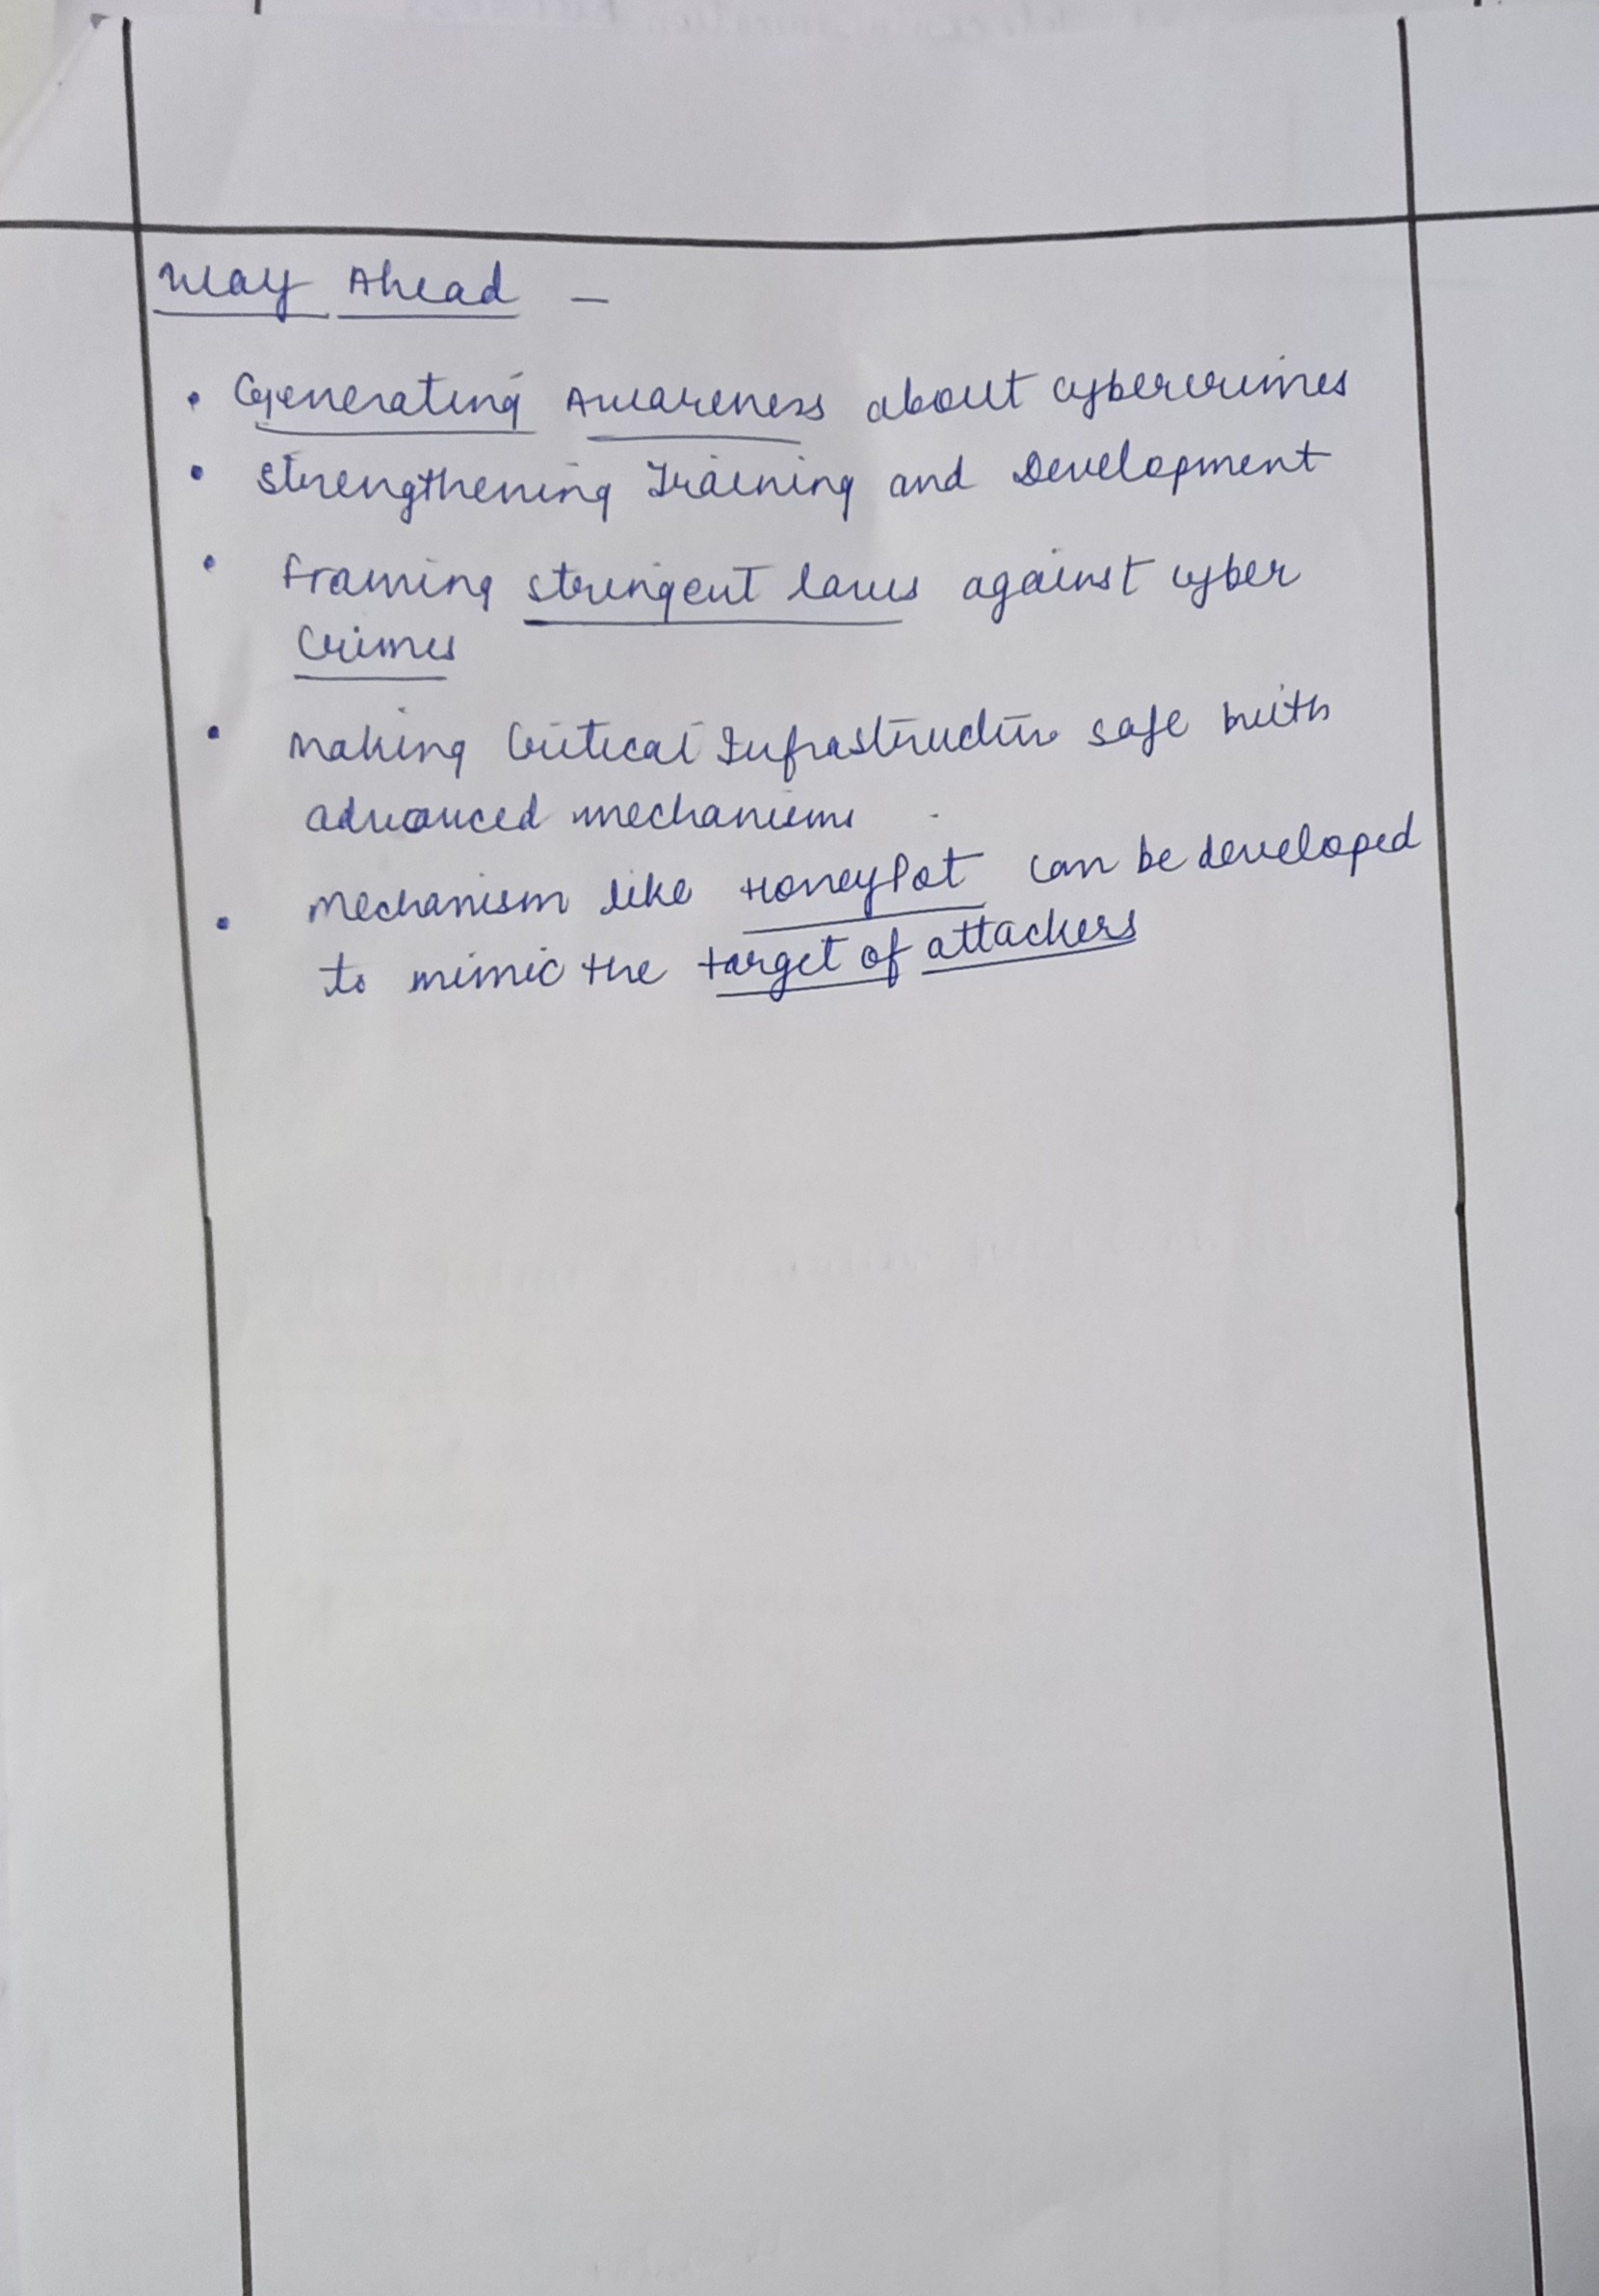 Way Ahead -
• Generating Awareness about cybercrimes
• Strengthening Training and Development
• Framing stringent laws against cyber
Crimes
• Making Critical Infrastructure safe with
advanced mechanisms
• Mechanism like HoneyPot can be developed
to mimic the target of attackers